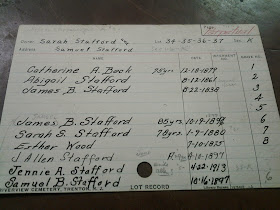 Perpetual
NAME Sarah Stafford &
Samuel Stafford
LOT 34-35-36-37 SEC. A
GRAVE NO.
Catherine A. Book 75yrs 12-18-1879 1
Abigail Stafford 8-12-1861 2
James B. Stafford 8-22-1838 3
4
5
James B. Stafford 85yrs 10-19-1898 6
Sarah S. Stafford 78yrs 1-9-1880 7
Esther Wood 7-10-1875 8
J Allen Stafford 4-12-1877
Jennie A. Stafford 4-22-1913
Samuel B. Stafford 10-16-1897 6
RIVERVIEW CEMETERY, TRENTON, N. J. LOT RECORD